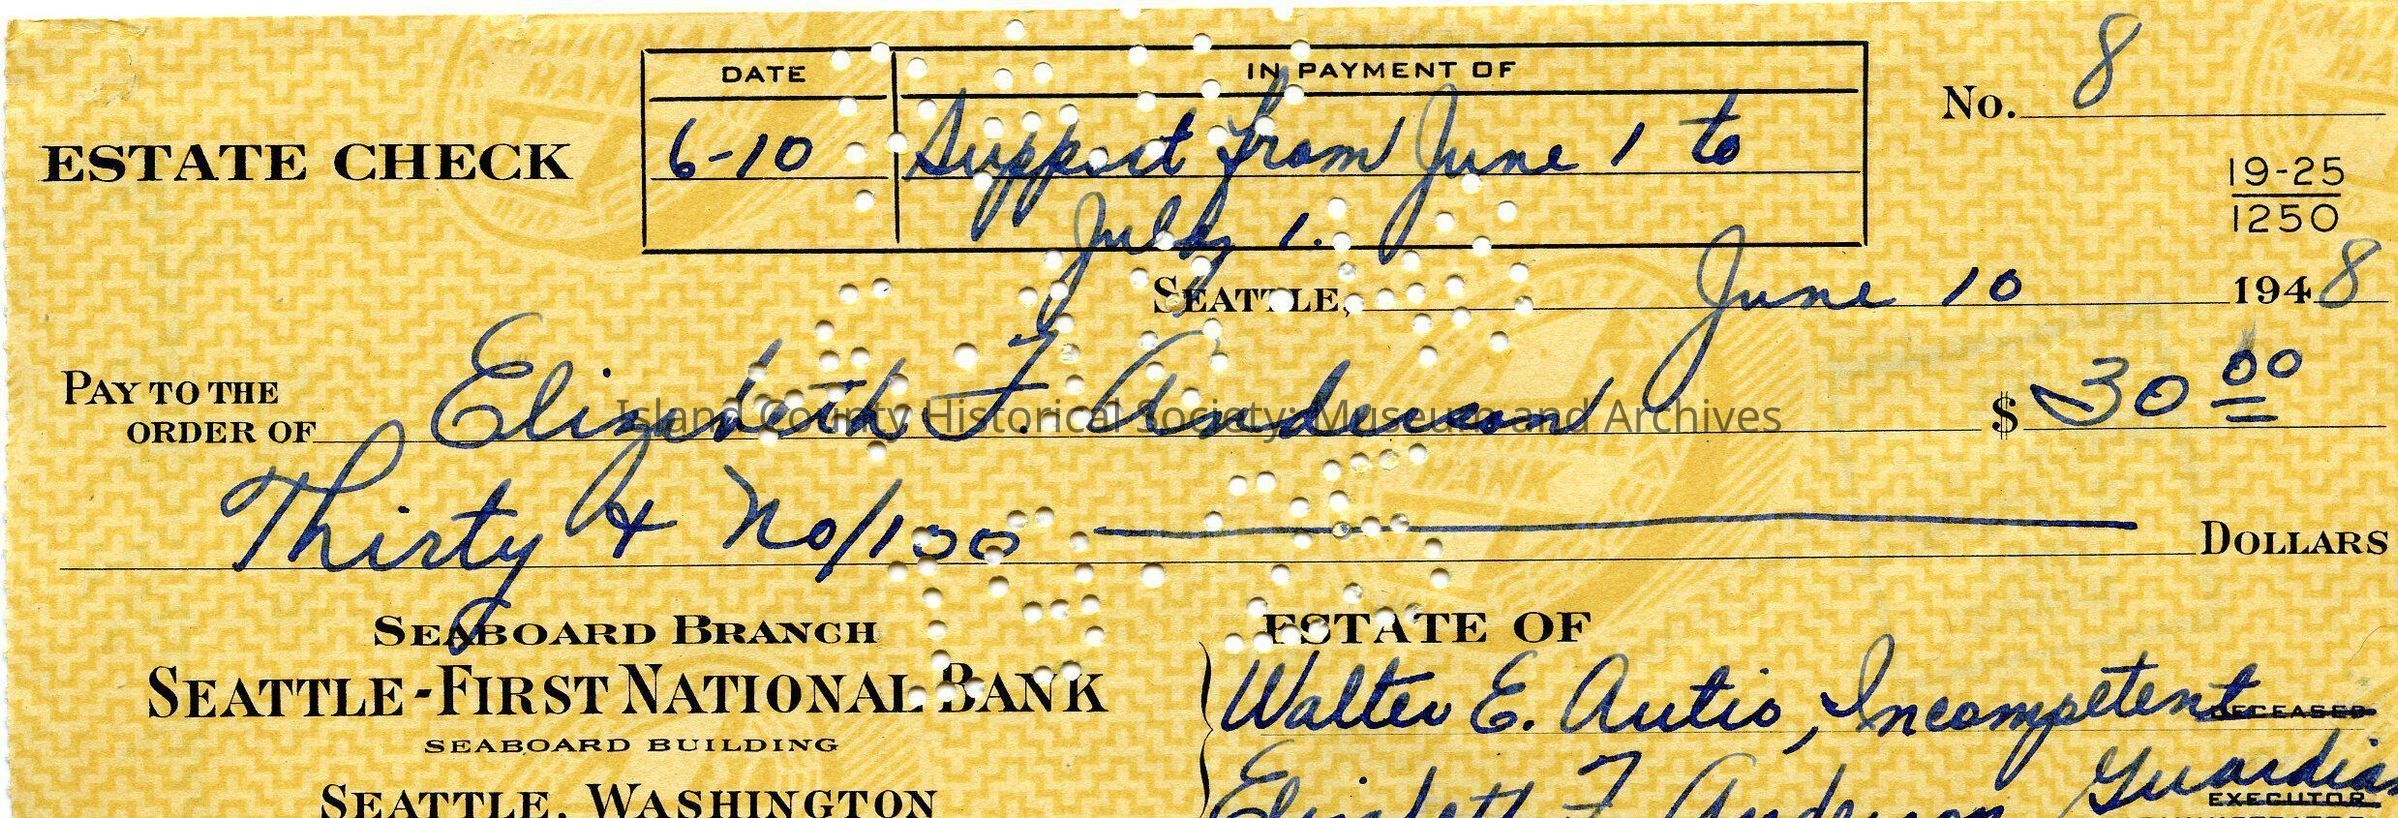 DATE IN PAYMENT OF
No. 8
ESTATE CHECK
6-10 Support from June 1 to
July 1.
19-25
1250
SEATTLE, June 10 1948
PAY TO THE
ORDER OF Elizabeth F. Anderson $ 30 00
Island County Historical Society: Museum and Archives
Thirty & No/100 DOLLARS
SEABOARD BRANCH
SEATTLE-FIRST NATIONAL BANK
SEABOARD BUILDING
SEATTLE, WASHINGTON
ESTATE OF
Walter E. Autio, Incompetent DECEASED
Elizabeth F. Anderson Guardian
EXECUTOR